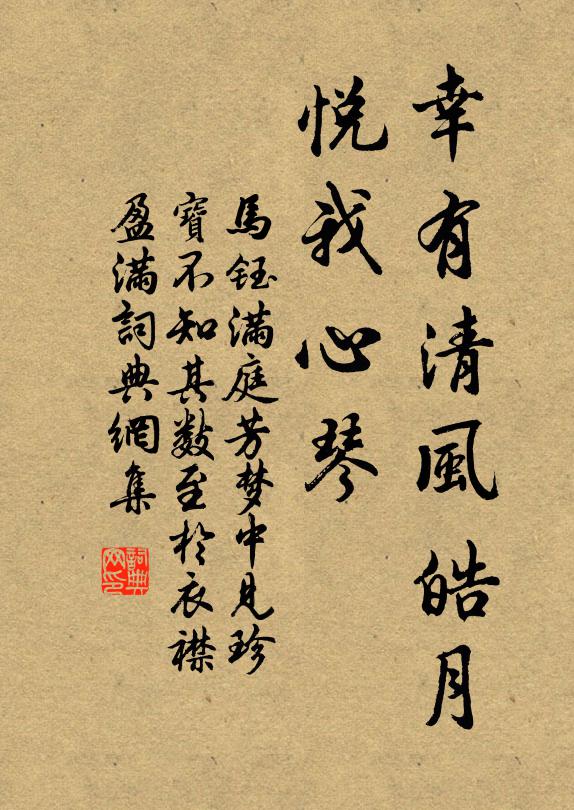 幸有清風皓月
悦我心琴
馬鈺滿庭芳梦中見珍
寶不知其數至於衣襟
盈滿詞典網集
詞典
网印